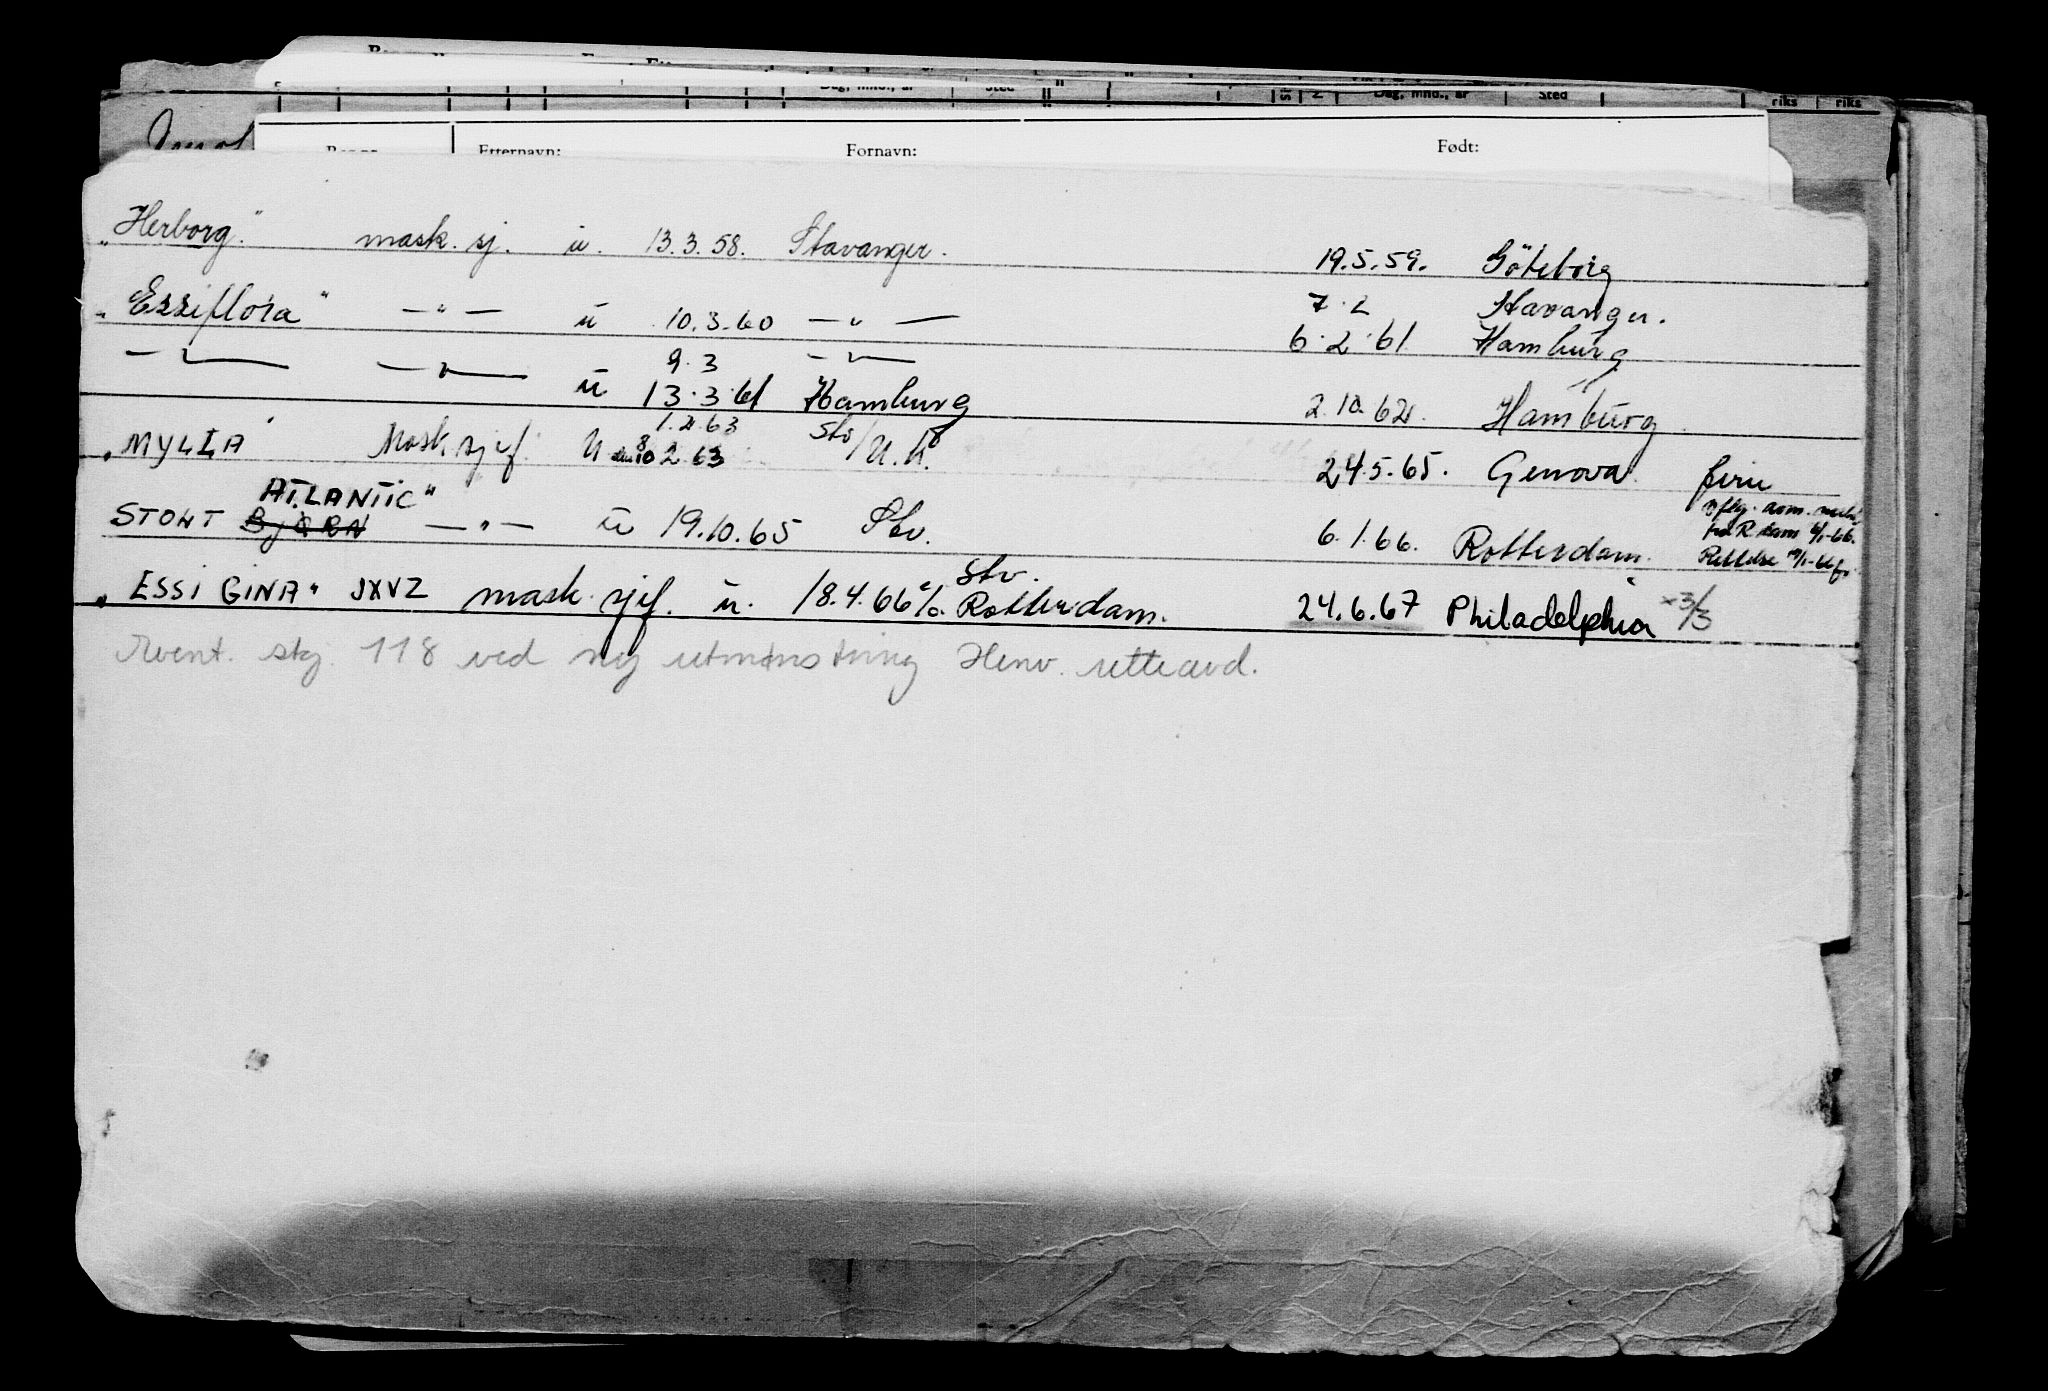 Dag, mnd., år Sted Dag, mnd., år Sted riks riks
Etternavn: Fornavn: Født:
„Herborg." mask. sj. u. 13.3.58. Stavanger. 19.5.59. Göteborg
„Essiflora" — " — u 10.3.60 — " — 7.2 Stavanger.
6.2.61 Hamburg
— " — — " — 9.3 — " —
u 13.3.61 Hamburg 2.10.62. Hamburg.
1.2.63 Stv/
„MYLIA" Mask sjef. U 2.63 U.K. 24.5.65. Genova. ferie
ATLANTIC"
STOLT BJØRN — " — u 19.10.65 Stv. 6.1.66. Rotterdam.
fra R.dam 6/1-66.
Rettelse
Stv.
„ESSI GINA" JXVZ mask. sjef. u. 18.4.66 Rotterdam. 24.6.67 Philadelphia 3/3
Event. skj. 118 ved ny utmønstring Henv. retteavd.